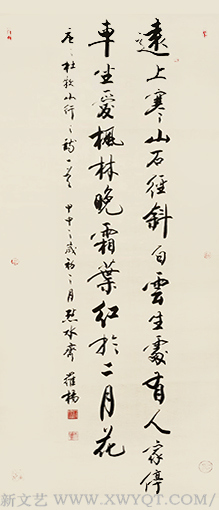 遠上寒山石徑斜白雲生處有人家停
車坐愛楓林晚霜葉紅於二月花
唐杜牧山行之詩一首 甲申之歲初之月 點水齋 羅楊
新文艺 WWW.XWYQT.COM